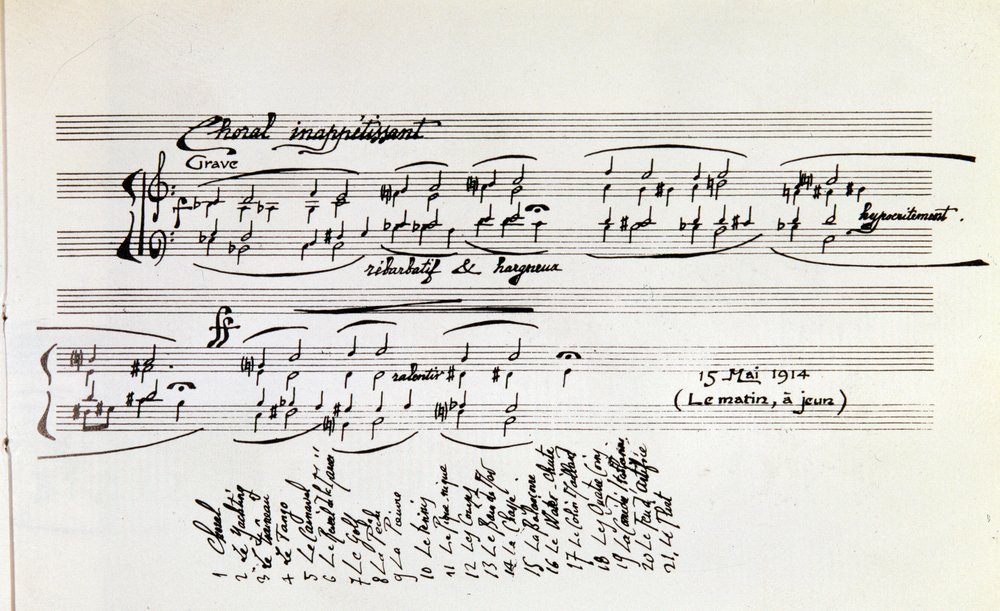 Choral inappétissant
Grave
hypocritement.
rébarbatif & hargneux
ff
ralentir
15 Mai 1914
(Le matin, à jeun)
1 Choral
2 Le Yachting
3
4 Le Tango
5 Le Carnaval
6 Le Réveil de la
7 Le Golf
8 La Pêche
9 La Pieuvre
10 Le Tennis
11 Le Pique-nique
12 Les Courses
13 Le Bain de
14 La Chasse
15 La Balançoire
16 Le Water-chute
17 Le Colin-Maillard
18 Les Quatre Coins
19 La Comédie Italienne
20 Le Feu d'Artifice
21 Le Flirt